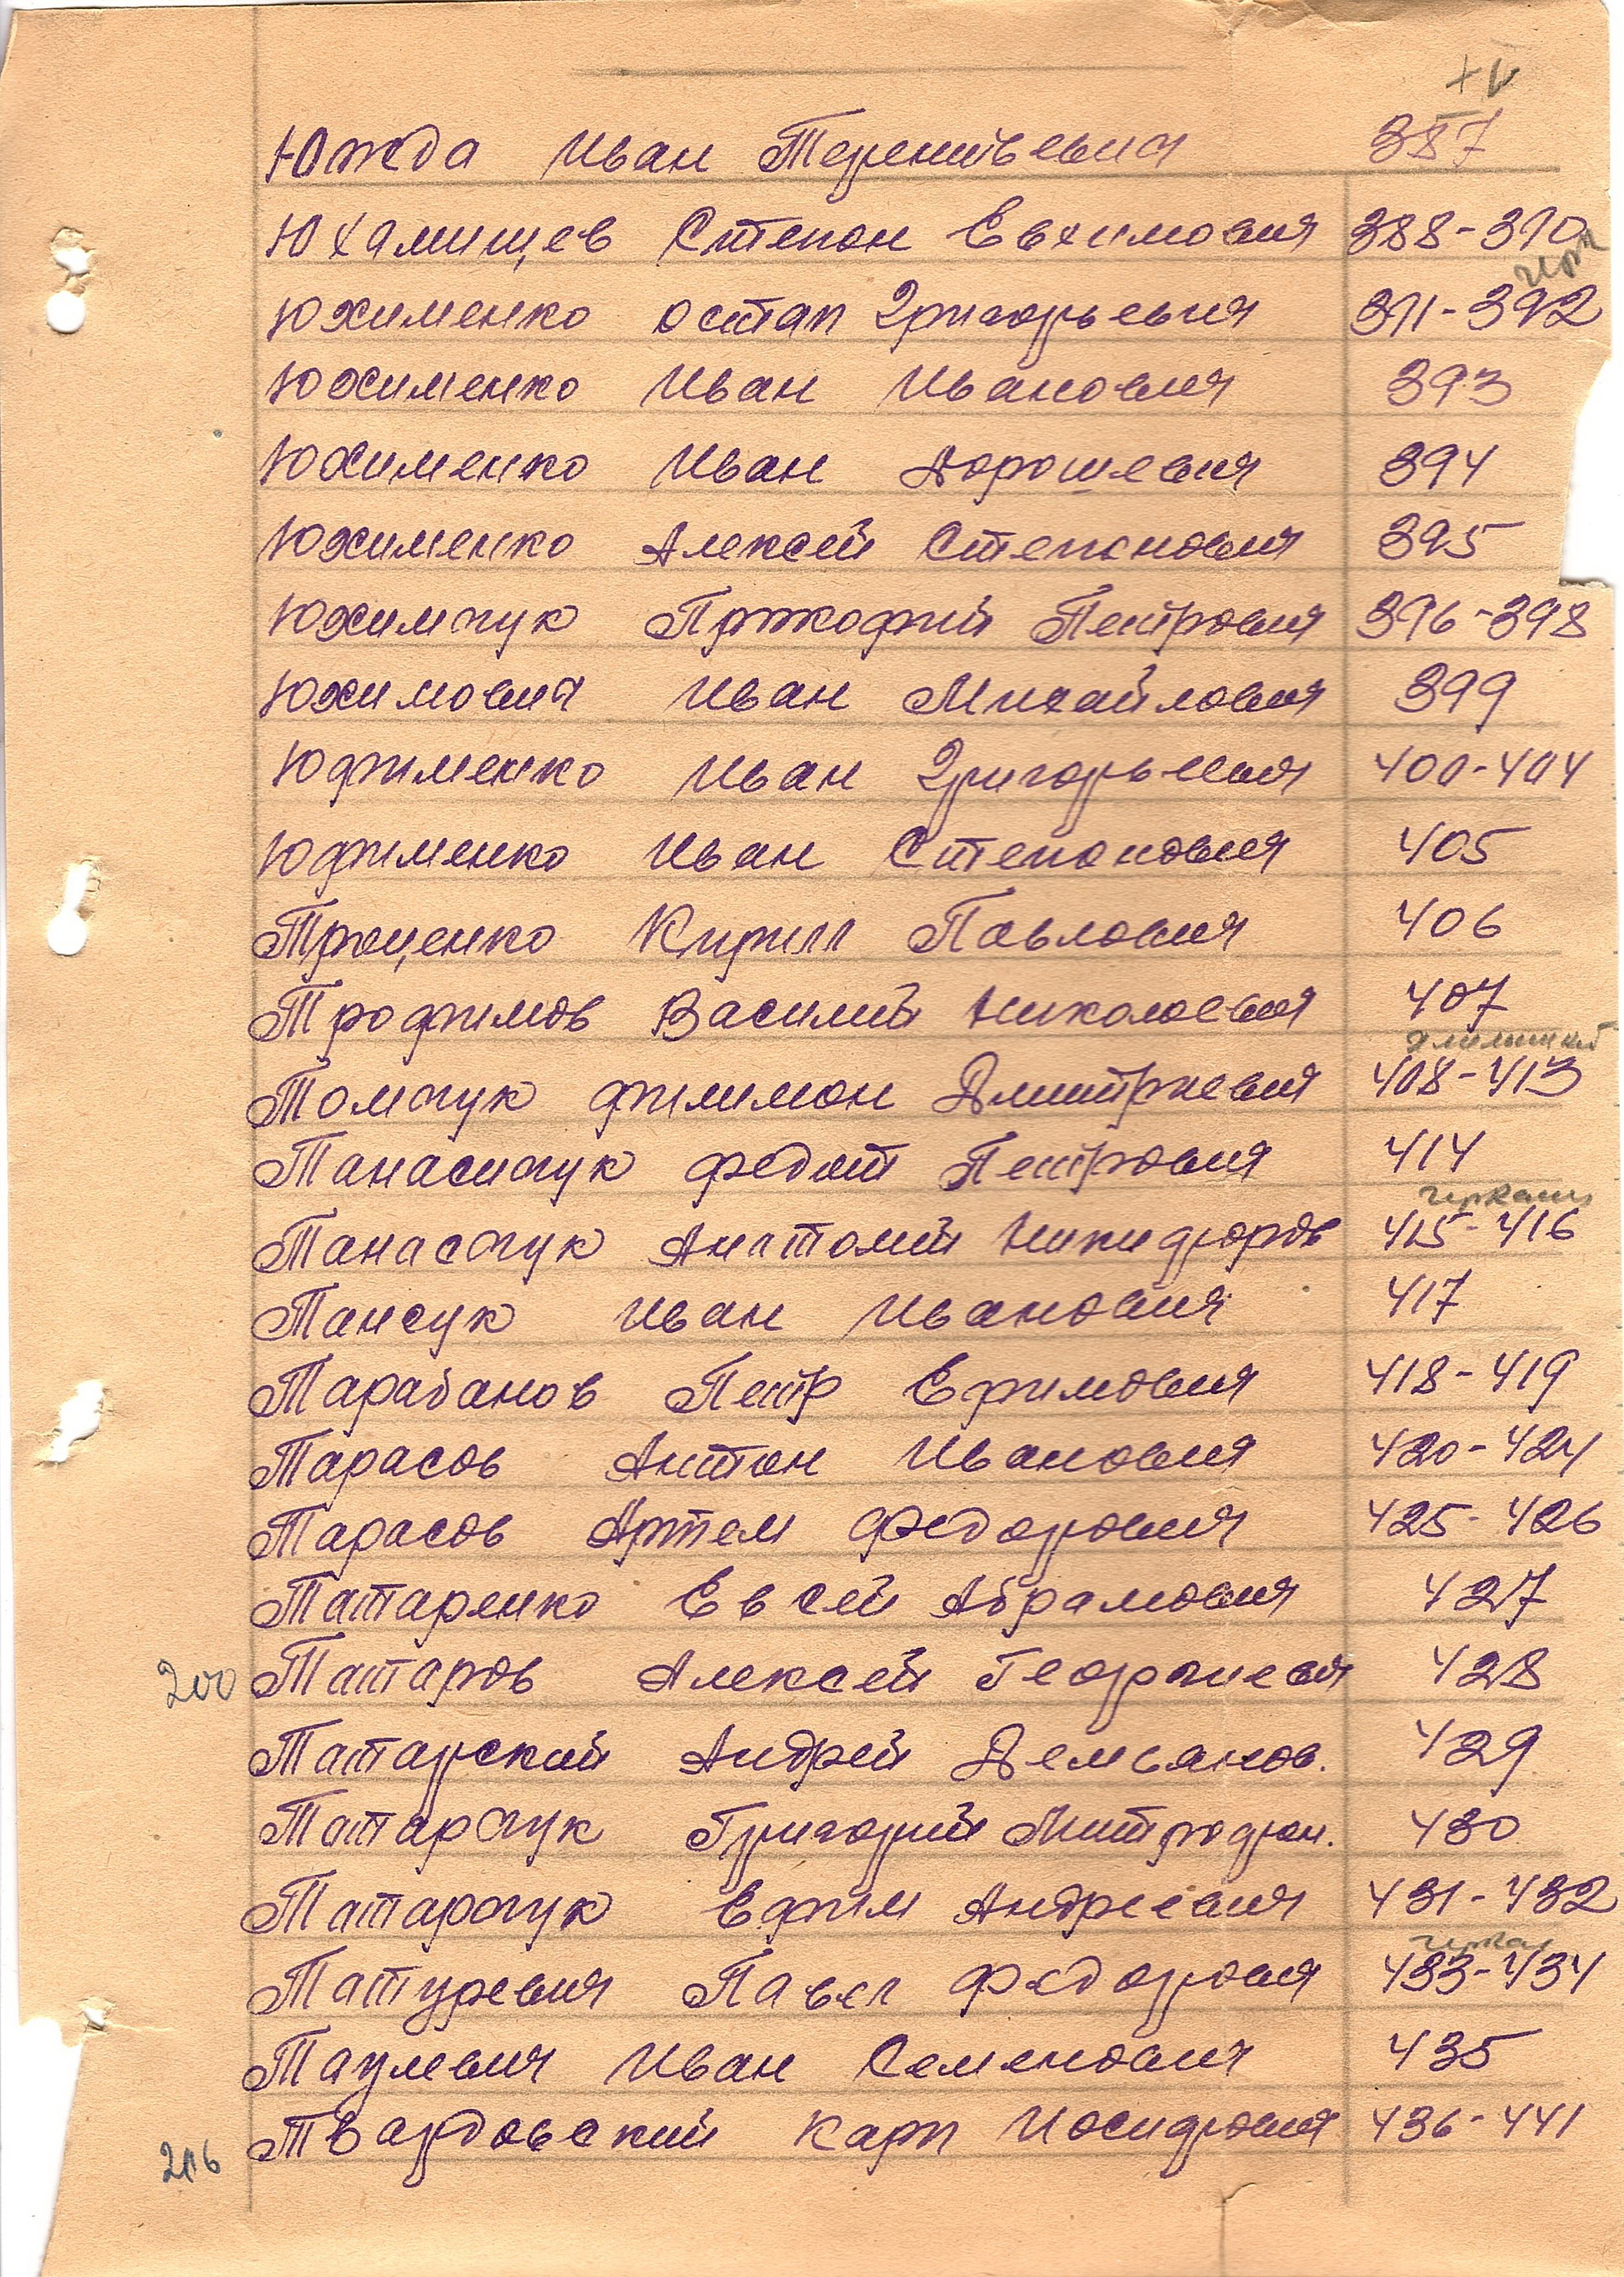 Южда Иван Терентьевич 387
Юхамищев Степан Евхимович 388-390
Юхименко Остап Григорьевич 391-392
Юхименко Иван Иванович 393
Юхименко Иван Дорошевич 394
Юхименко Алексей Степанович 395
Юхимчук Прокофий Петрович 396-398
Юхимович Иван Михайлович 399
Юфименко Иван Григорьевич 400-404
Юфименко Иван Степанович 405
Троценко Кирилл Павлович 406
Трофимов Василий Николаевич 407
Томчук Филимон Дмитриевич 408-413
Танасичук Федот Петрович 414
черкассы
Танасчук Анатолий Никифоров 415-416
Тансук Иван Иванович 417
Тарабанов Петр Ефимович 418-419
Тарасов Антон Иванович 420-424
Тарасов Артем Федорович 425-426
Татаренко Евсей Абрамович 427
200 Татаров Алексей Георгиевич 428
Татарский Андрей Демьянов. 429
Татарчук Григорий Митрофан. 430
Татарчук Ефим Андреевич 431-432
Татуревич Павел Федорович 433-434
Таулевич Иван Семенович 435
206 Твардовский Карп Иосифович 436-441